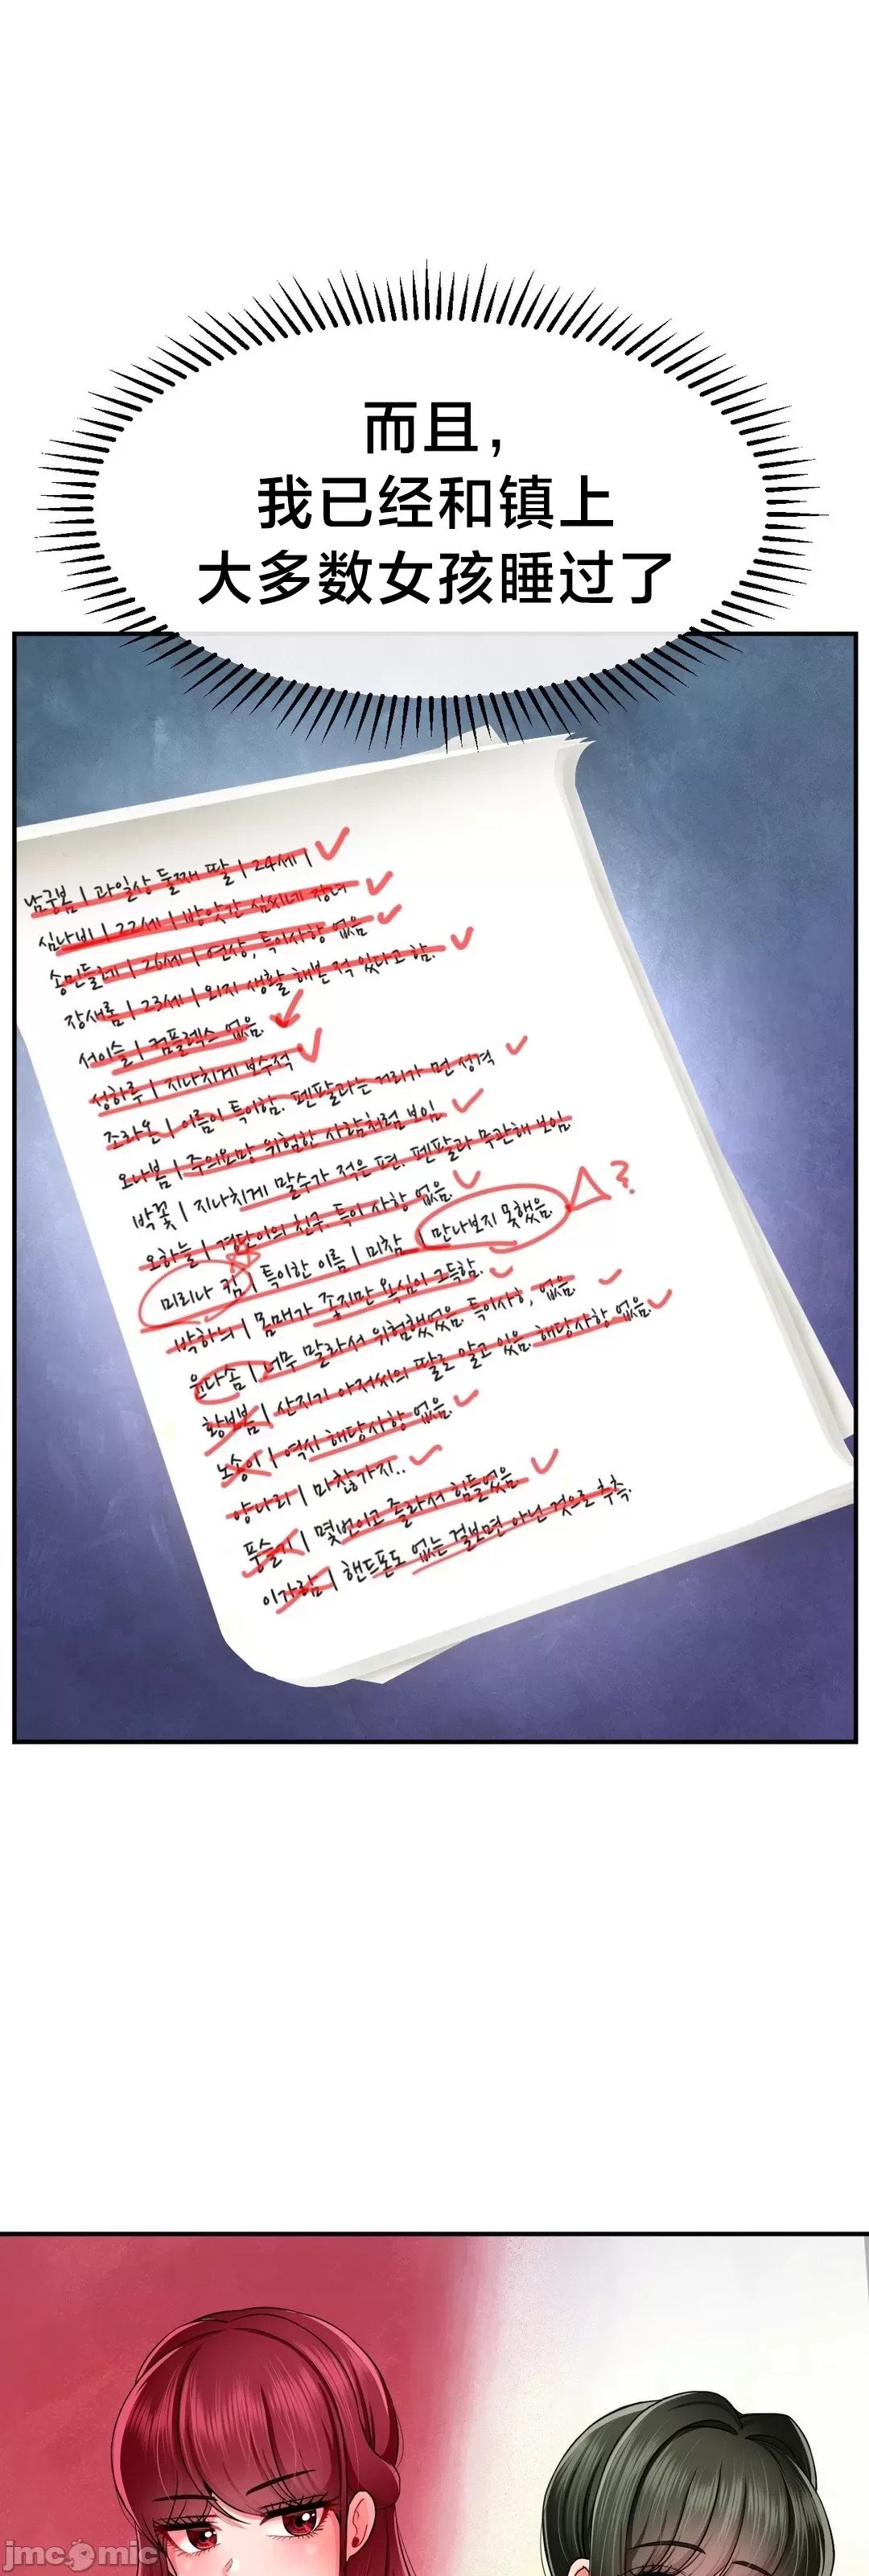 而且，
我已经和镇上
大多数女孩睡过了
남궁봄 | 과일상 둘째 딸 | 24세 |
심나비 | 22세 | 방앗간 심씨네 장녀
송민들레 | 26세 | 연상, 특이사항 없음
장새롬 | 23세 | 외지 생활 해본 적 있다고 함.
서이슬 | 컴플렉스 없음.
성하루 | 지나치게 보수적
조라온 | 이름이 특이함. 펜팔과는 거리가 먼 성격
오나봄 | 주의요망 위험한 사람처럼 보임
박꽃 | 지나치게 말수가 적은 편. 펜팔과 무관해 보임
오하늘 | 경단이의 친구. 특이 사항 없음.
미리나 킴 | 특이한 이름 | 미참 | 만나보지 못했음. ?
박하늬 | 몸매가 좋지만 욕심이 그득함.
윤다솜 | 너무 말라서 위험했었음. 특이사항, 없음.
황보봄 | 산지기 아저씨의 딸로 알고 있음. 해당사항 없음.
노송이 | 역시 해당사항 없음.
양나리 | 마찬가지..
풍슬기 | 몇번이고 졸라서 힘들었음.
이가람 | 핸드폰도 없는 걸보면 아닌 것으로 추측.
jmcomic